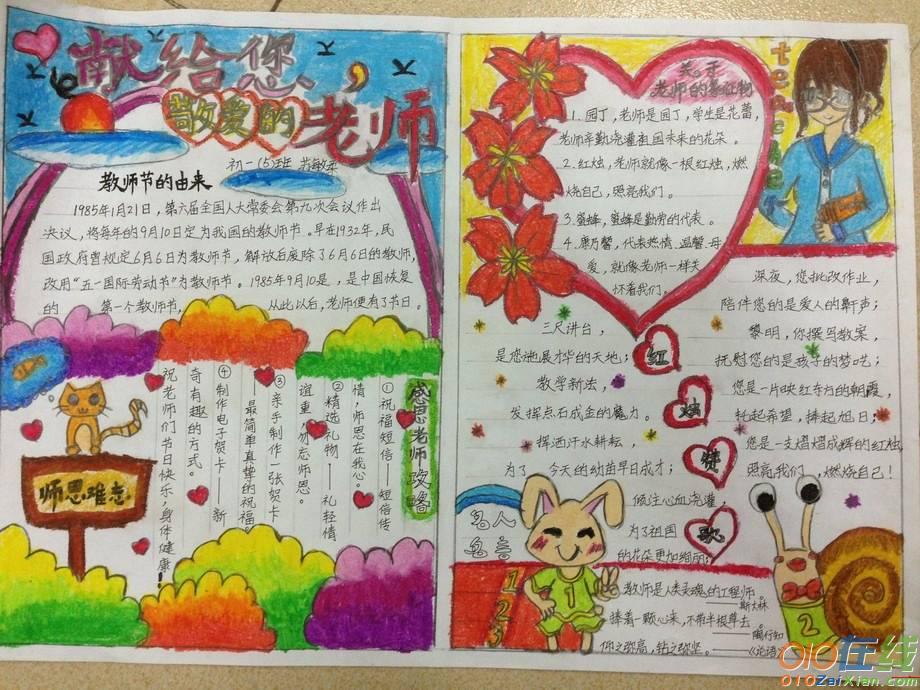 献给您、
敬爱的老师
初一(5)班
教师节的由来
1985年1月21日，第六届全国人大常委会第九次会议作出
决议，将每年的9月10日定为我国的教师节。早在1932年，民
国政府曾规定6月6日为教师节，解放后废除了6月6日的教师，
改用“五一国际劳动节”为教师节。1985年9月10是，是中国恢复
的 第一个教师节， 从此以后，老师便有了节日。
感恩老师攻略
①祝福短信——短信传
情，师恩在我心。
②精选礼物——礼轻情
谊重，勿忘师恩。
③亲手制作一张贺卡
——最简单真挚的祝福
④制作电子贺卡——新
奇有趣的方式。
祝老师们节日快乐、身体健康！
师恩难忘
关于
老师的象征物
1.园丁，老师是园丁，学生是花蕾，
老师辛勤浇灌祖国未来的花朵。
2.红烛，老师就像一根红烛，燃
烧自己，照亮我们。
3.蜜蜂，蜜蜂是勤劳的代表。
4.康乃馨，代表热情、温馨、母
爱，就像老师一样关
怀着我们。
teacher
红烛赞歌
三尺讲台，
是您施展才华的天地；
教学新法，
发挥点石成金的魔力。
挥洒汗水耕耘，
为了 今天的幼苗早日成才；
倾注心血浇灌，
为了祖国
的花朵更加绚丽；
深夜，您批改作业，
陪伴您的是爱人的鼾声；
黎明，你撰写教案，
抚慰您的是孩子的梦呓；
您是一片映红东方的朝霞
托起希望，捧起旭日；
您是一支熠熠成辉的红烛，
照亮我们，燃烧自己！
名人
名言
1
2
3
教师是人类灵魂的工程师。
——斯大林
捧着一颗心来，不带半根草去。
——陶行知
仰之弥高，钻之弥坚。——《论语》
1
2
010在线
010ZaiXian.com